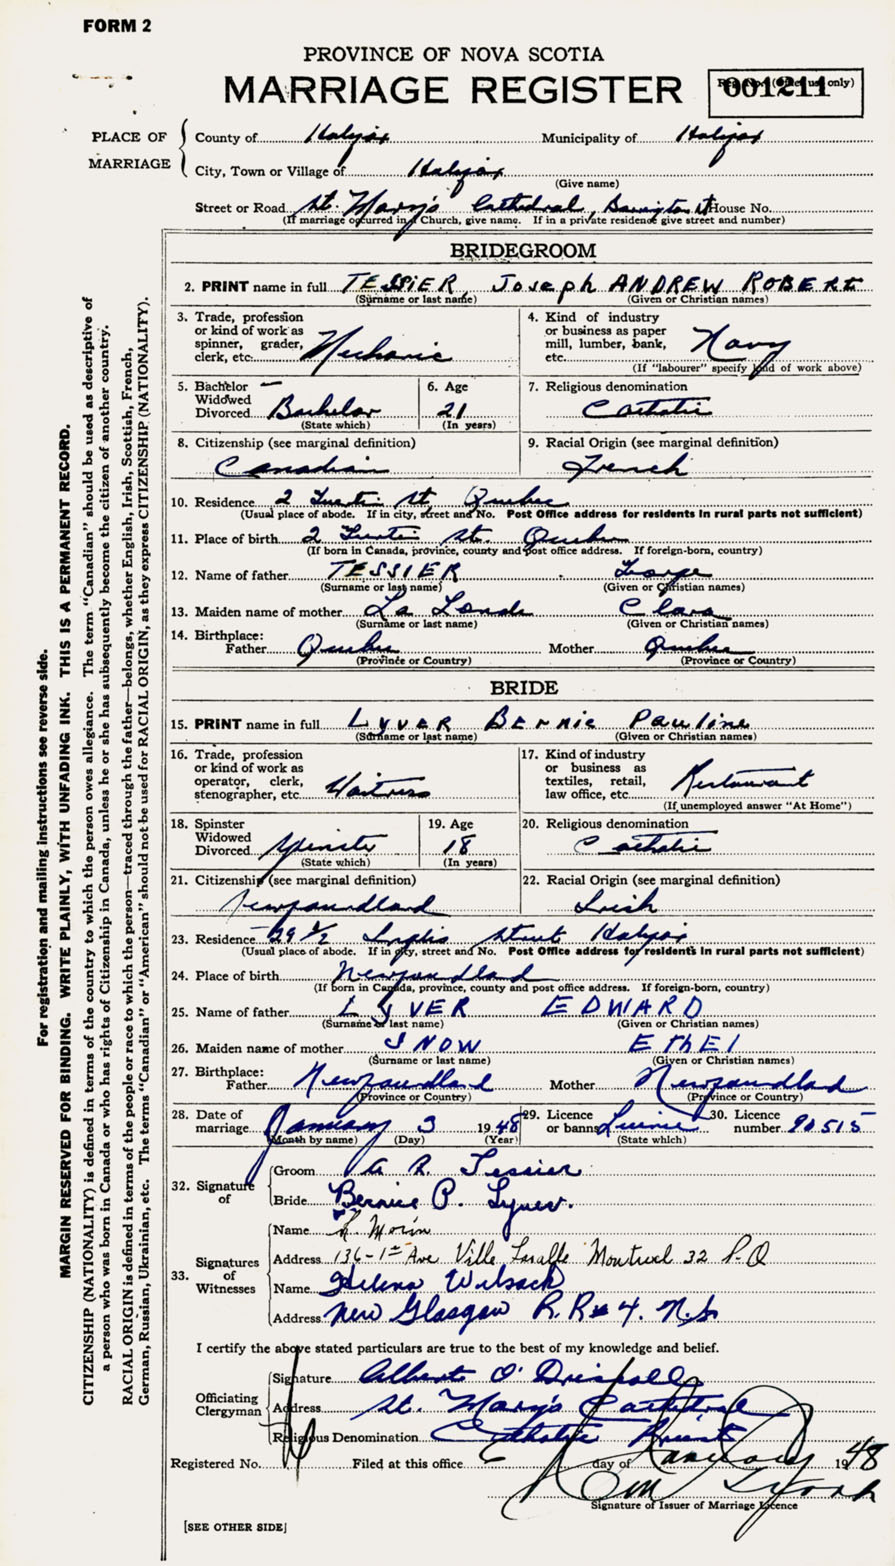 FORM 2
PROVINCE OF NOVA SCOTIA
MARRIAGE REGISTER
Reg. No. (Office use only)
001211
PLACE OF MARRIAGE
County of Halifax Municipality of Halifax
City, Town or Village of Halifax
(Give name)
Street or Road St. Mary's Cathedral, Barrington St House No.
(If marriage occurred in a Church, give name. If in a private residence give street and number)
BRIDEGROOM
2. PRINT name in full TESSIER Joseph ANDREW ROBERT
(Surname or last name) (Given or Christian names)
3. Trade, profession or kind of work as spinner, grader, clerk, etc. Mechanic
4. Kind of industry or business as paper mill, lumber, bank, etc. Navy
(If "labourer" specify kind of work above)
5. Bachelor Widowed Divorced Bachelor
(State which)
6. Age 21
(In years)
7. Religious denomination Catholic
8. Citizenship (see marginal definition) Canadian
9. Racial Origin (see marginal definition) French
10. Residence 2 St, Quebec
(Usual place of abode. If in city, street and No. Post Office address for residents in rural parts not sufficient)
11. Place of birth 2 St. Quebec
(If born in Canada, province, county and post office address. If foreign-born, country)
12. Name of father TESSIER George
(Surname or last name) (Given or Christian names)
13. Maiden name of mother La Londe Clara
(Surname or last name) (Given or Christian names)
14. Birthplace:
Father Quebec Mother Quebec
(Province or Country) (Province or Country)
BRIDE
15. PRINT name in full LYVER Bernie Pauline
(Surname or last name) (Given or Christian names)
16. Trade, profession or kind of work as operator, clerk, stenographer, etc. Waitress
17. Kind of industry or business as textiles, retail, law office, etc. Restaurant
(If unemployed answer "At Home")
18. Spinster Widowed Divorced Spinster
(State which)
19. Age 18
(In years)
20. Religious denomination Catholic
21. Citizenship (see marginal definition) Newfoundland
22. Racial Origin (see marginal definition) Irish
23. Residence 29 1/2 Inglis Street Halifax
(Usual place of abode. If in city, street and No. Post Office address for residents in rural parts not sufficient)
24. Place of birth Newfoundland
(If born in Canada, province, county and post office address. If foreign-born, country)
25. Name of father LYVER EDWARD
(Surname or last name) (Given or Christian names)
26. Maiden name of mother SNOW EthEl
(Surname or last name) (Given or Christian names)
27. Birthplace:
Father Newfoundland Mother Newfoundland
(Province or Country) (Province or Country)
28. Date of marriage January 3 1948
(Month by name) (Day) (Year)
29. Licence or banns License
(State which)
30. Licence number 90515
32. Signature of
Groom A R. Tessier
Bride Bernice P. Lyver.
33. Signatures of Witnesses
Name R. Morin
Address 136-1st Ave Ville Lasalle Montreal 32 P.Q
Name Helena
Address New Glasgow R.R # 4. N.S
I certify the above stated particulars are true to the best of my knowledge and belief.
Officiating Clergyman
Signature Albert O'Driscoll
Address St. Mary's Cathedral
Religious Denomination Catholic Priest
Registered No. Filed at this office day of January 1948
Signature of Issuer of Marriage Licence
[SEE OTHER SIDE]
For registration and mailing instructions see reverse side.
MARGIN RESERVED FOR BINDING. WRITE PLAINLY, WITH UNFADING INK. THIS IS A PERMANENT RECORD.
CITIZENSHIP (NATIONALITY) is defined in terms of the country to which the person owes allegiance. The term "Canadian" should be used as descriptive of
a person who was born in Canada or who has rights of Citizenship in Canada, unless he or she has subsequently become the citizen of another country.
RACIAL ORIGIN is defined in terms of the people or race to which the person—traced through the father—belongs, whether English, Irish, Scottish, French,
German, Russian, Ukrainian, etc. The terms "Canadian" or "American" should not be used for RACIAL ORIGIN, as they express CITIZENSHIP (NATIONALITY).